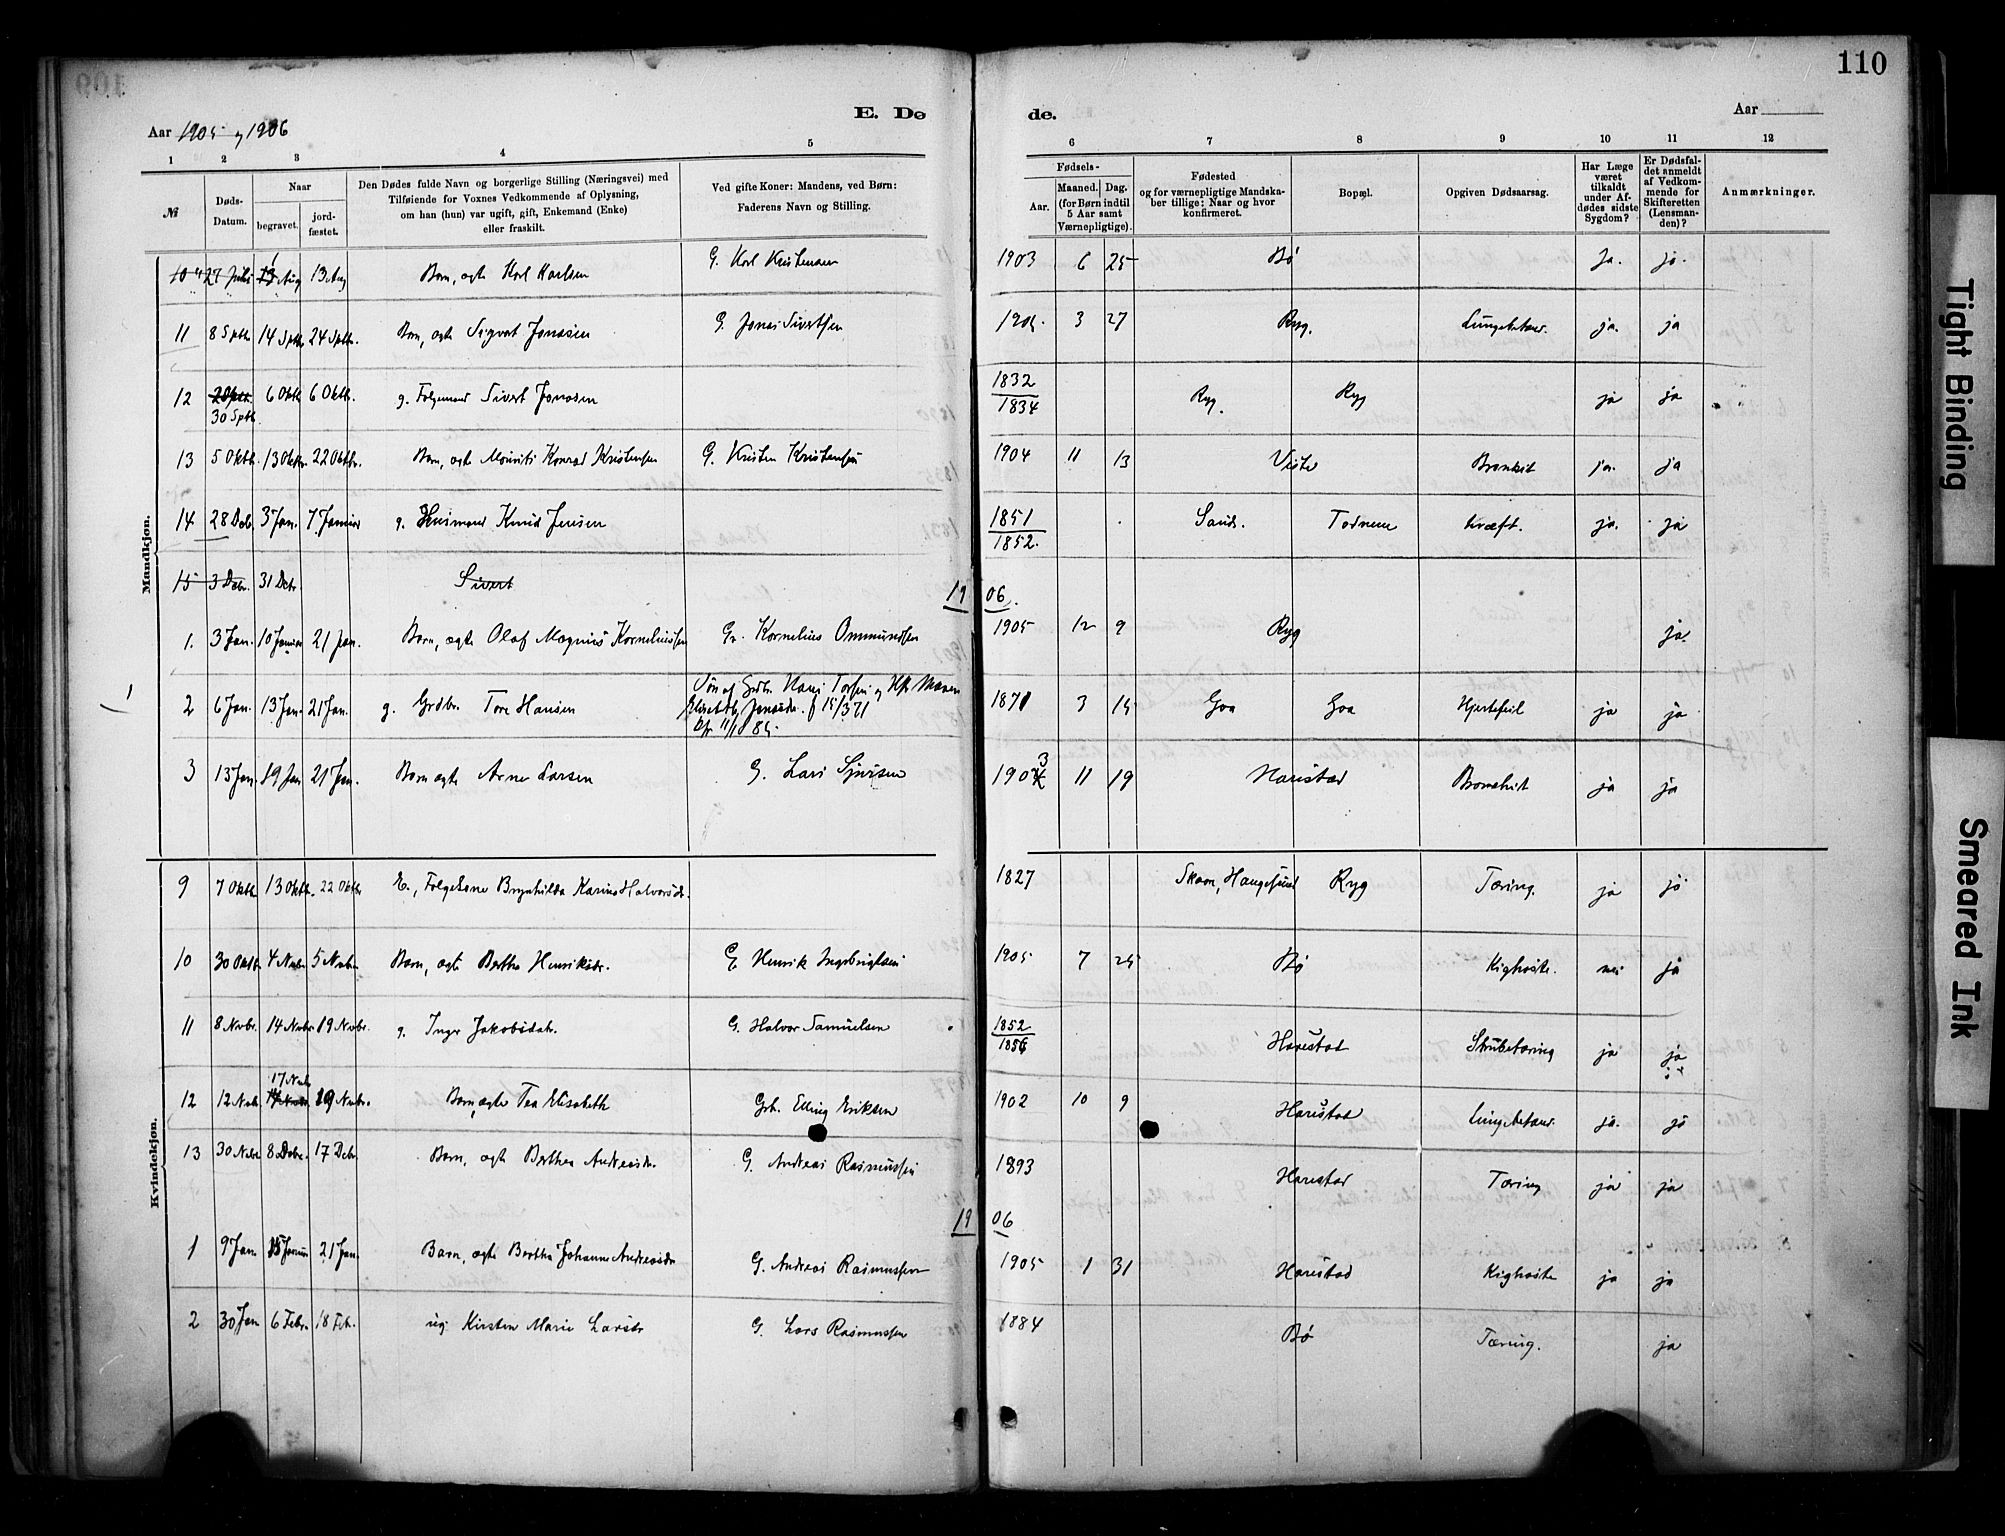 110
E. Dø de.
Aar 1905 og 1906
Aar
1 2 3 4 5 6 7 8 9 10 11 12
№
Døds-Datum.
Naar
begravet.
jord-fæstet.
Den Dødes fulde Navn og borgerlige Stilling (Næringsvei) med
Tilføiende for Voxnes Vedkommende af Oplysning,
om han (hun) var ugift, gift, Enkemand (Enke)
eller fraskilt.
Ved gifte Koner: Mandens, ved Børn:
Faderens Navn og Stilling.
Fødsels-
Aar.
Maaned. Dag.
(for Børn indtil
5 Aar samt
Værnepligtige).
Fødested
og for værnepligtige Mandska-
ber tillige: Naar og hvor
konfirmeret.
Bopæl.
Opgiven Dødsaarsag.
Har Læge
været
tilkaldt
under Af-
dødes sidste
Sygdom?
Er Dødsfal-
det anmeldt
af Vedkom-
mende for
Skifteretten
(Lensman-
den)?
Anmærkninger.
Mandkjøn.
10 27 Juli Aug 13 Aug Barn, ægte Karl Karlsen G. Karl Kristensen 1903 6 25 Bø Ja. ja.
11 8 Sptb. 14 Sptb. 24 Sptb. Barn, ægte Sigvat Jonassen G. Jonas Sivertsen 1905. 3 27 Ryg. Lungebetænd. ja. ja
12 30 Sptb. 6 Oktb. 6 Oktb. g. Folgemand Sivert Jonasen 1832/1834 Ryg. Ryg ja ja
13 5 Oktb. 13 Oktbr. 22 Oktbr. Barn, ægte Konrad Kristensen G. Kristen Kristensen 1904 11 13 Viste Bronkit ja. ja
14 28 Deb. 3 Jan. 7 Januar g. Husmand Knud Jensen 1851/1852. Sand. Todnem kræft. ja. ja
15 3 Debr. 31 Debr. Sivert
1906.
1. 3 Jan. 10 Januar 21 Jan. Barn, ægte Olaf Magnus Korneliussen G. Kornelius Ommundsen 1905 12 9 Ryg ja.
2 6 Jan. 13 Jan. 21 Jan. g. Grdbr. Tore Hansen Søn af Grdbr. Hans Torsen og Hst. Maren
Elisabeth Jonasdr. f 15/3 71
1871 3 15 Goa Goa Hjertefeil ja ja
3 13 Jan. 19 Jan 21 Jan. Barn ægte Arne Larsen G. Lars Sjursen 1903 11 19 Harestad Bronchit ja ja
Kvindekjøn.
9 7 Oktb. 13 Oktb. 22 Oktb. E., Folgekone Brynhilda Karine Halvorsdr. 1827 Skaan, Haugesund Ryg Tæring. ja ja
10 30 Oktb. 4 Nvbr. 5 Nvbr. Barn, ægte Bertha Henriksdr. G. Henrik Ingebrigtsen 1905 7 25 Bø Kighoste. nei ja
11 8 Nvbr. 14 Nvbr. 19 Nvbr. g. Inger Jakobsdatr. G. Halvor Samuelsen 1852/1856 Harestad Strubetæring ja ja
12 12 Nvbr. 17 Nvbr 19 Nvbr. Barn, ægte Tea Elisabeth Grb. Elling Eriksen 1902 10 9 Harestad Lungebetænd. ja. ja
13 30 Nvbr 8 Debr. 17 Debr. Barn, ægte Berthea Andreasdr. G. Andreas Rasmussen 1893 Harestad Tæring ja ja
1906
1 9 Jan. 15 Januar 21 Jan. Barn, ægte Bertha Johanne Andreasdr. G. Andreas Rasmussen 1905 1 31 Harestad Kighoste ja ja
2 30 Jan 6 Febr. 18 Feb. ug. Kirsten Marie Larsdr G. Lars Rasmussen 1884 Bø Tæring. ja
Tight Binding
Smeared Ink